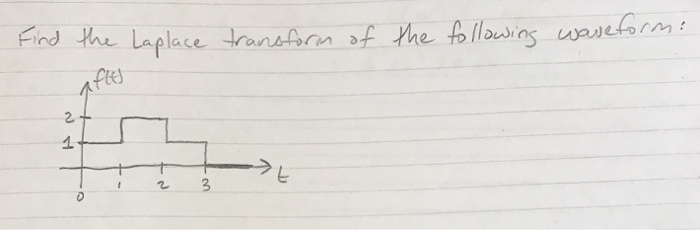 Find the Laplace transform of the following waveform:
f(t)
2
1
t
0
1
2
3